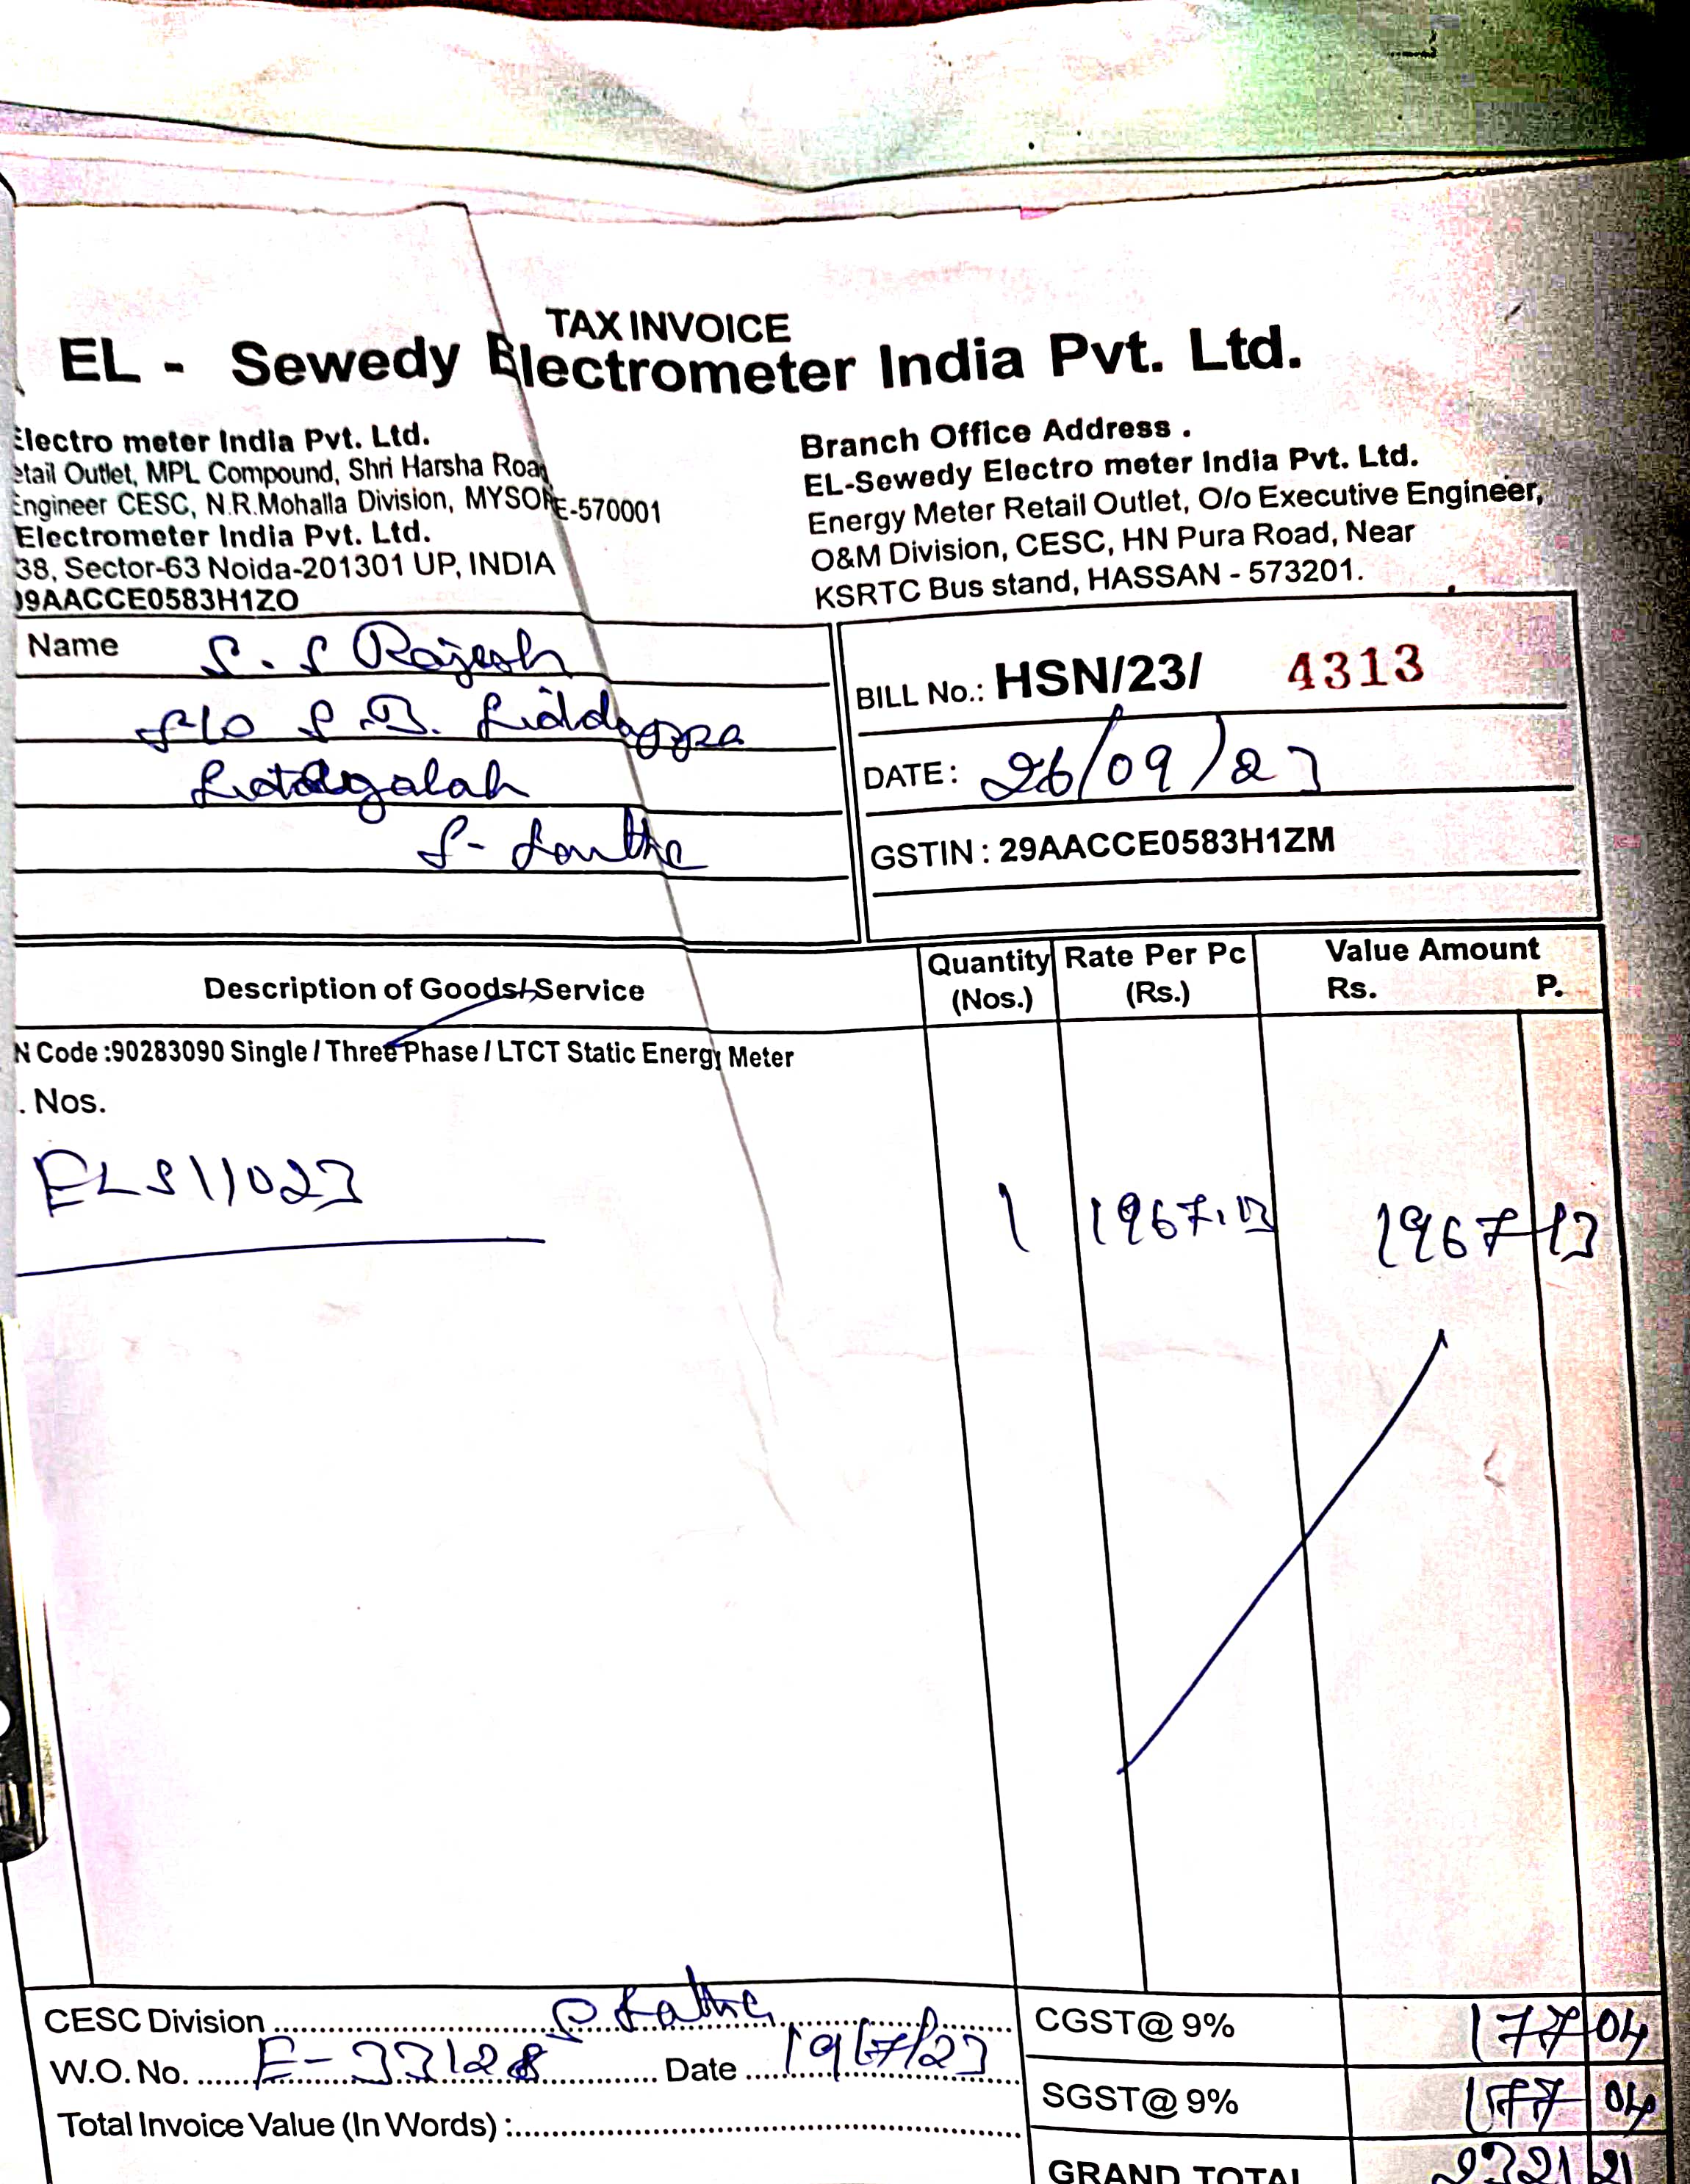 TAX INVOICE
EL - Sewedy Electrometer India Pvt. Ltd.
Electro meter India Pvt. Ltd.
etail Outlet, MPL Compound, Shri Harsha Road
Engineer CESC, N.R.Mohalla Division, MYSORE-570001
Electrometer India Pvt. Ltd.
38, Sector-63 Noida-201301 UP, INDIA
09AACCE0583H1ZO
Branch Office Address .
EL-Sewedy Electro meter India Pvt. Ltd.
Energy Meter Retail Outlet, O/o Executive Engineer,
O&M Division, CESC, HN Pura Road, Near
KSRTC Bus stand, HASSAN - 573201.
Name S. S Rajesh
S/o S. B. Siddappa
BILL No.: HSN/23/ 4313
DATE: 26/09/23
GSTIN : 29AACCE0583H1ZM
Description of Goods/Service Quantity (Nos.) Rate Per Pc (Rs.) Value Amount Rs. P.
N Code :90283090 Single / Three Phase / LTCT Static Energy Meter
. Nos.
ELS11023 1 1967.13 1967 13
CESC Division
W.O. No. E-33128 Date 19/7/23
Total Invoice Value (In Words) :
CGST@ 9% 177 04
SGST@ 9% 177 04
GRAND TOTAL 2321 21